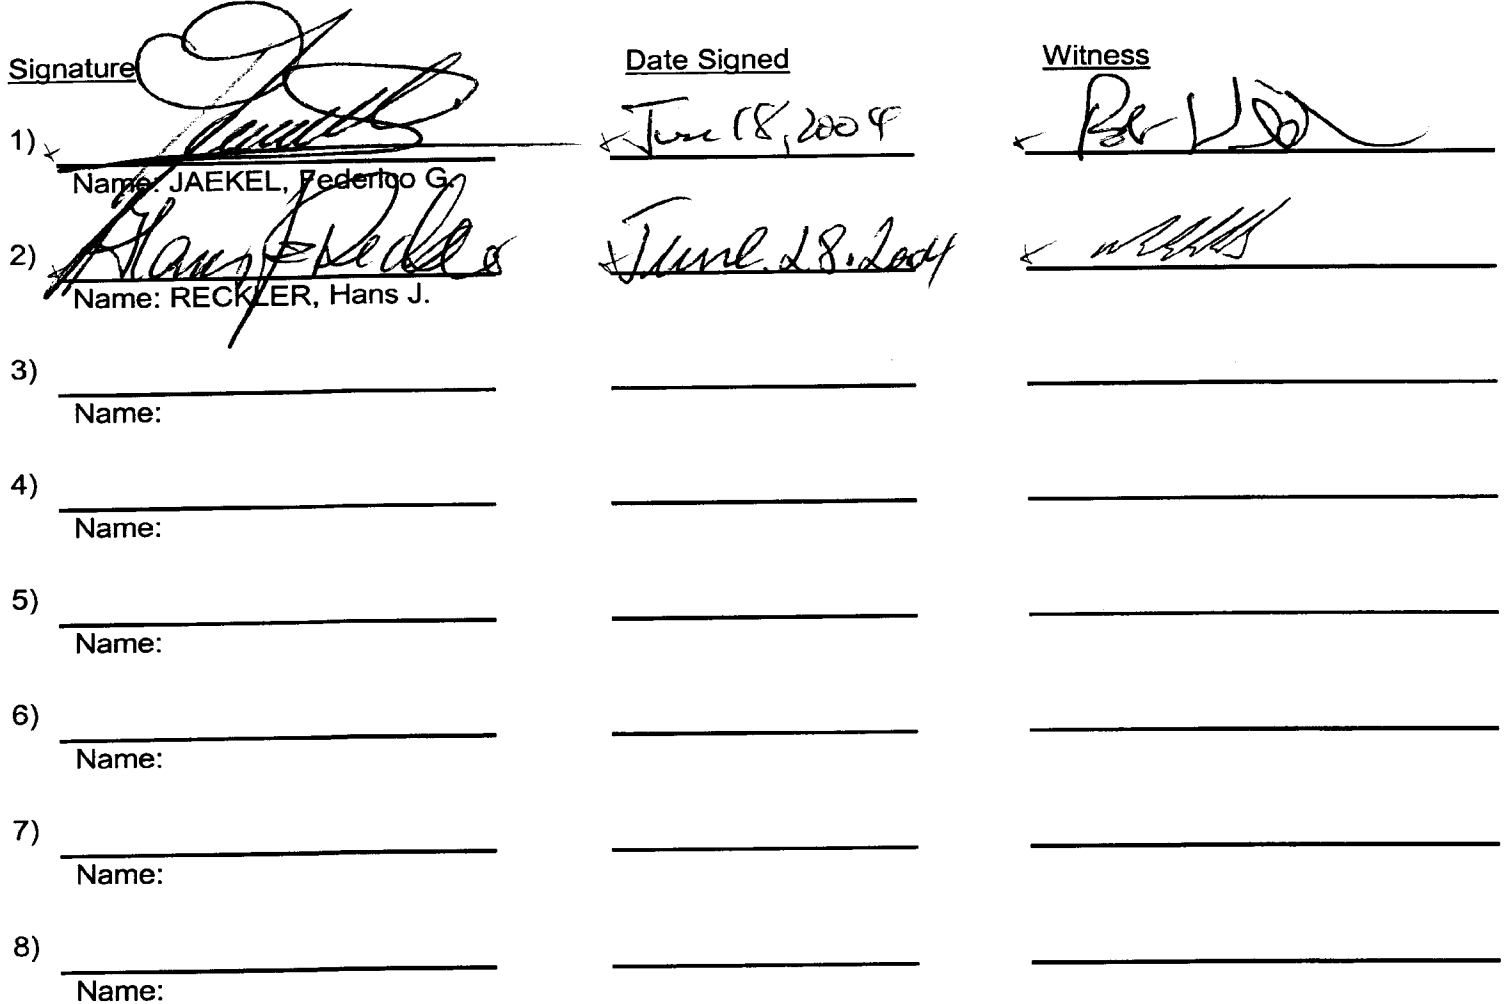 Signature Date Signed Witness
1) x June 18, 2004 x
Name: JAEKEL, Federico G.
2) x Hans J Reckler x June. 28. 2004 x
Name: RECKLER, Hans J.
3)
Name:
4)
Name:
5)
Name:
6)
Name:
7)
Name:
8)
Name: